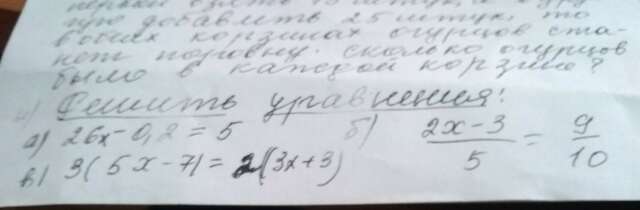 взять 15 штук, а
добавить 25 штук, то
в обеих корзинах огурцов ста-
нет поровну. Сколько огурцов
было в каждой корзине?
4) Решить уравнения:
а) 26x - 0,2 = 5 б) (2x-3)/5 = 9/10
в) 3(5x-7) = 2(3x+3)